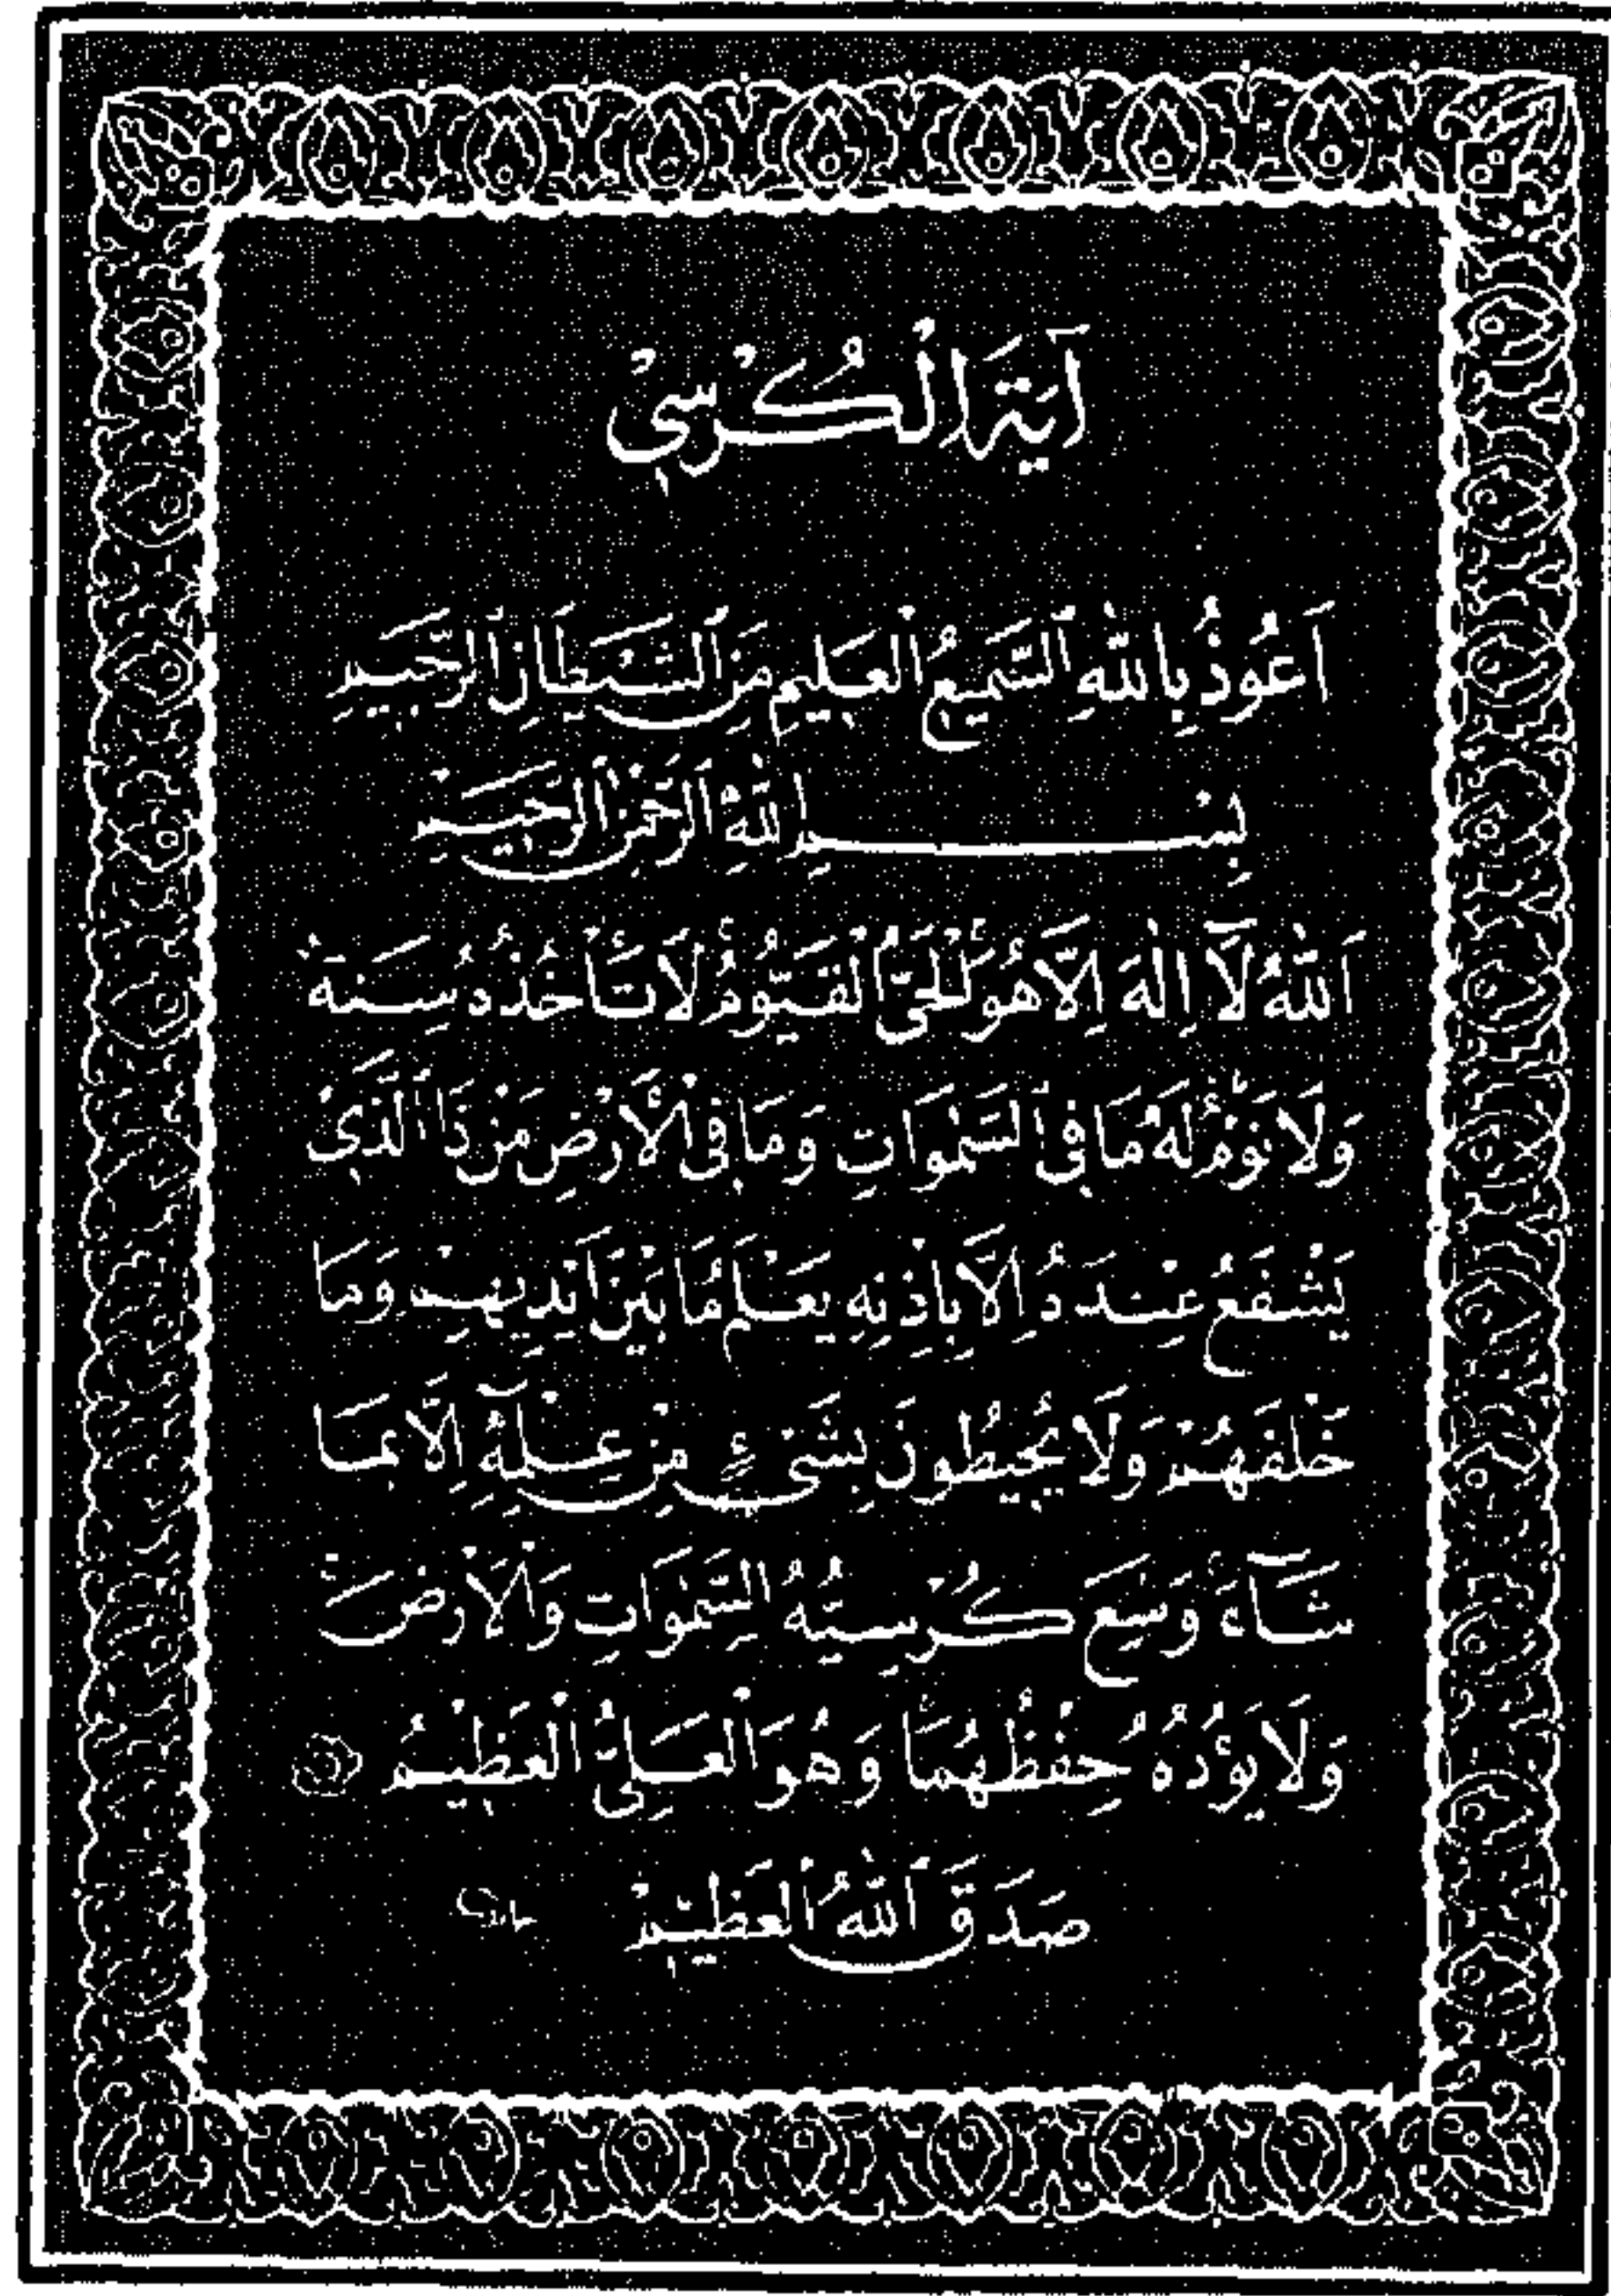 اٰيَةَ الْكُرْسِيْ
اَعُوذُ بِاللهِ السَّمِيعِ الْعَلِيمِ مِنَ الشَّيْطَانِ الرَّجِيمِ
بِسْمِ اللهِ الرَّحْمٰنِ الرَّحِيمِ
اَللهُ لَآ اِلٰهَ اِلَّا هُوَ الْحَيُّ الْقَيُّومُ لَا تَأْخُذُهُ سِنَةٌ
وَلَا نَوْمٌ لَهُ مَا فِي السَّمٰوَاتِ وَمَا فِي الْاَرْضِ مَنْ ذَا الَّذِي
يَشْفَعُ عِنْدَهُ اِلَّا بِاِذْنِهِ يَعْلَمُ مَا بَيْنَ اَيْدِيهِمْ وَمَا
خَلْفَهُمْ وَلَا يُحِيطُونَ بِشَيْءٍ مِنْ عِلْمِهِ اِلَّا بِمَا
شَآءَ وَسِعَ كُرْسِيُّهُ السَّمٰوَاتِ وَالْاَرْضَ
وَلَا يَؤُدُهُ حِفْظُهُمَا وَهُوَ الْعَلِيُّ الْعَظِيمُ
صَدَقَ اللهُ الْعَظِيمْ